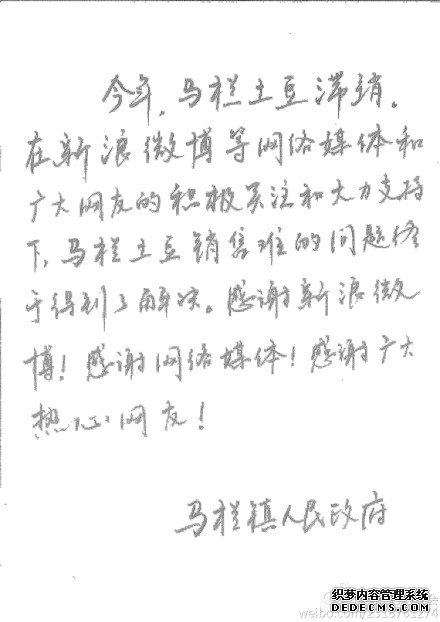 今年，马栏土豆滞销。
在新浪微博等网络媒体和
广大网友的积极关注和大力支持
下，马栏土豆销售难的问题终
于得到了解决。感谢新浪微
博！感谢网络媒体！感谢广大
热心网友！
马栏镇人民政府
织梦内容管理系统
DEDECMS.COM